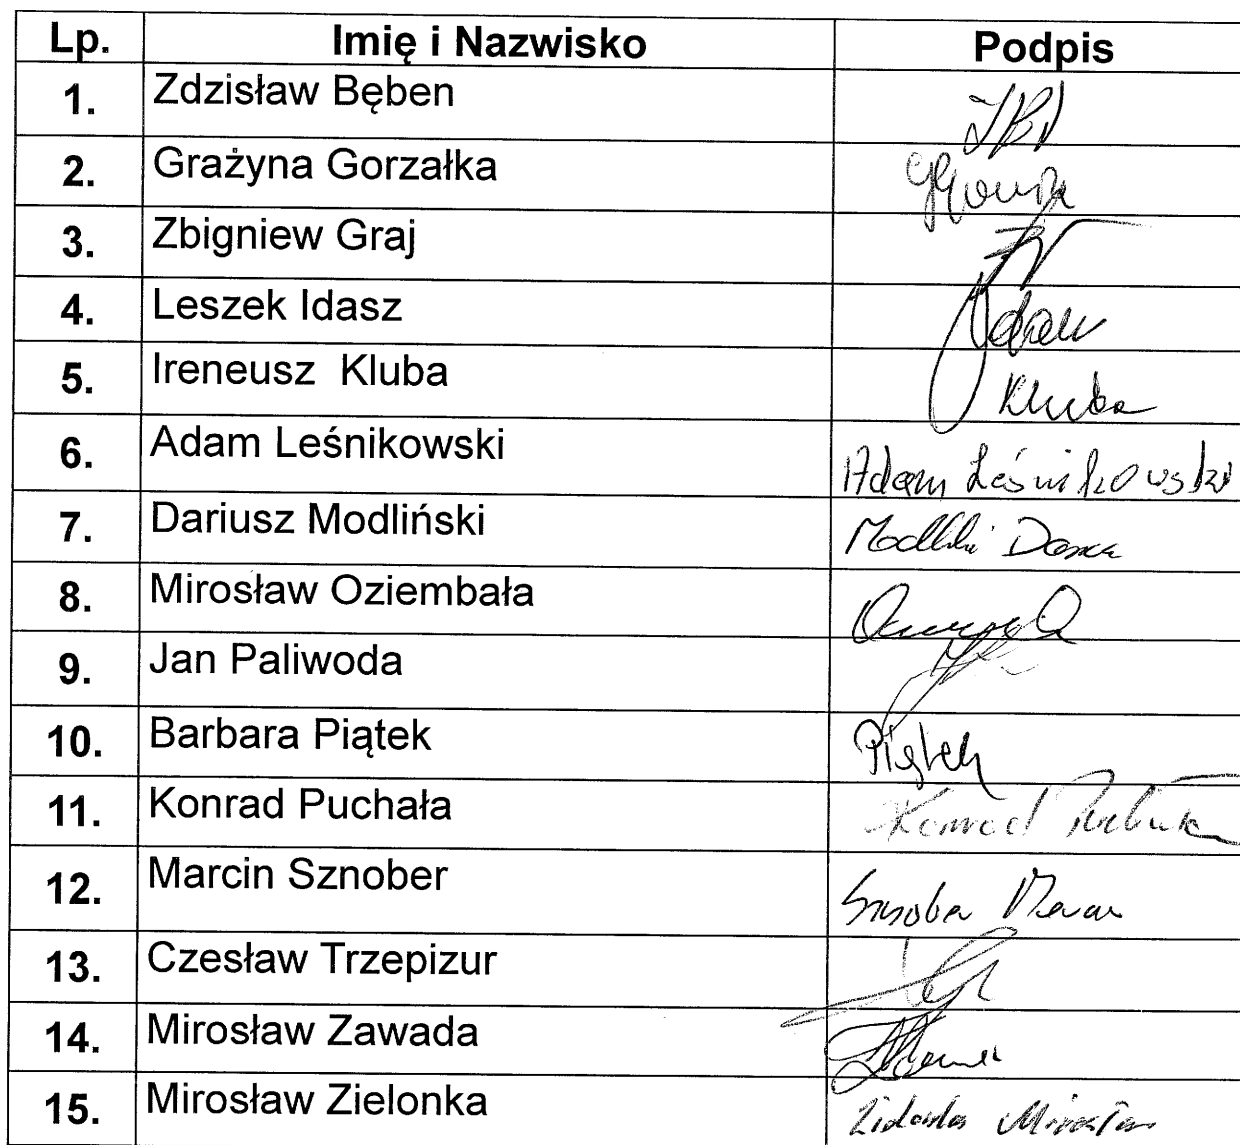 Lp. Imię i Nazwisko Podpis
1. Zdzisław Bęben
2. Grażyna Gorzałka
3. Zbigniew Graj
4. Leszek Idasz
5. Ireneusz Kluba Kluba
6. Adam Leśnikowski Adam Leśnikowski
7. Dariusz Modliński
8. Mirosław Oziembała
9. Jan Paliwoda
10. Barbara Piątek Piątek
11. Konrad Puchała Konrad
12. Marcin Sznober
13. Czesław Trzepizur
14. Mirosław Zawada
15. Mirosław Zielonka